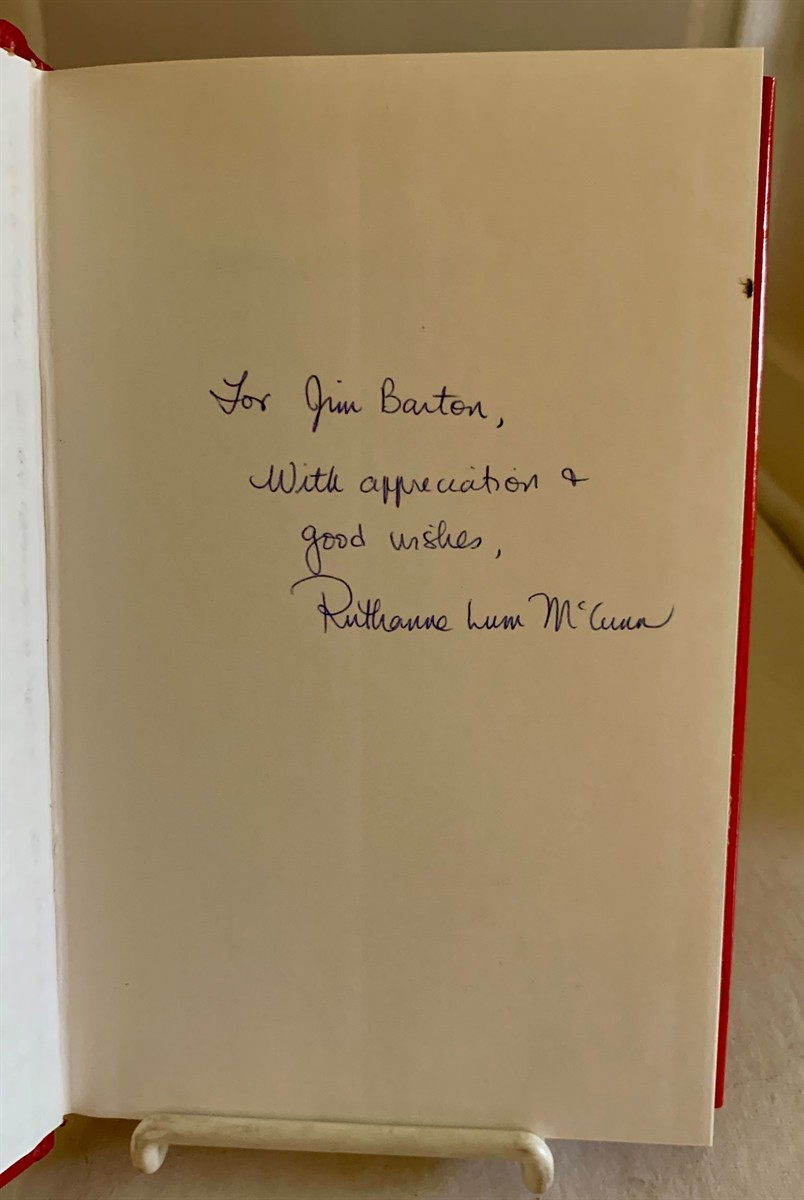 For Jim Barton,
With appreciation &
good wishes,
Ruthanne Lum McCunn